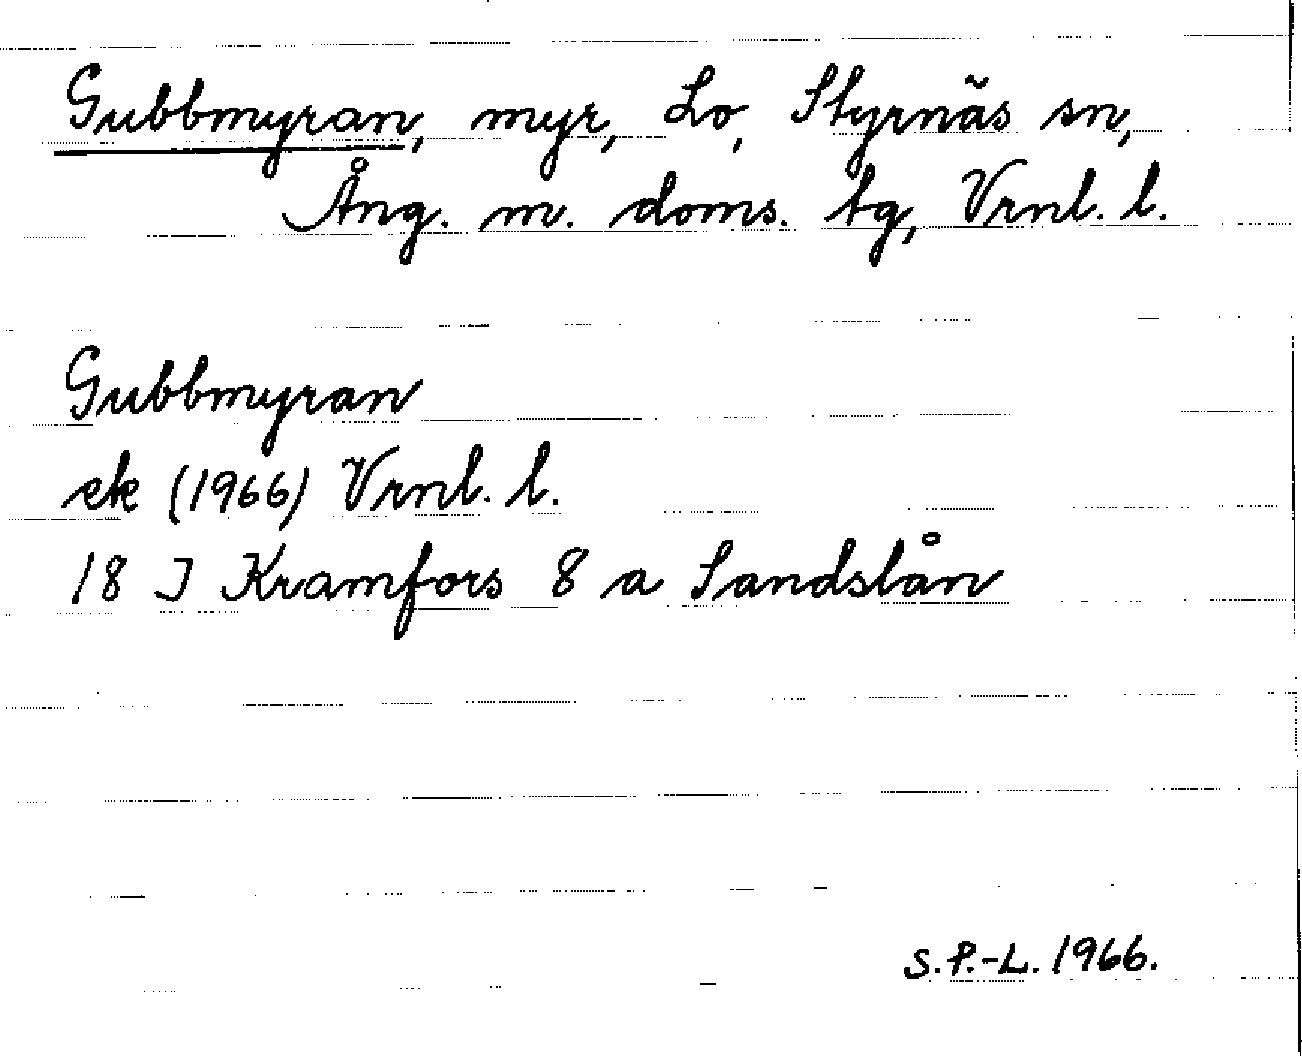 Gubbmyran, myr, Lo, Styrnäs sn,
Ång. m. doms. tg, Vrnl. l.
Gubbmyran
ek (1966) Vrnl. l.
18 J Kramfors 8 a Sandslån
S.P.-L. 1966.